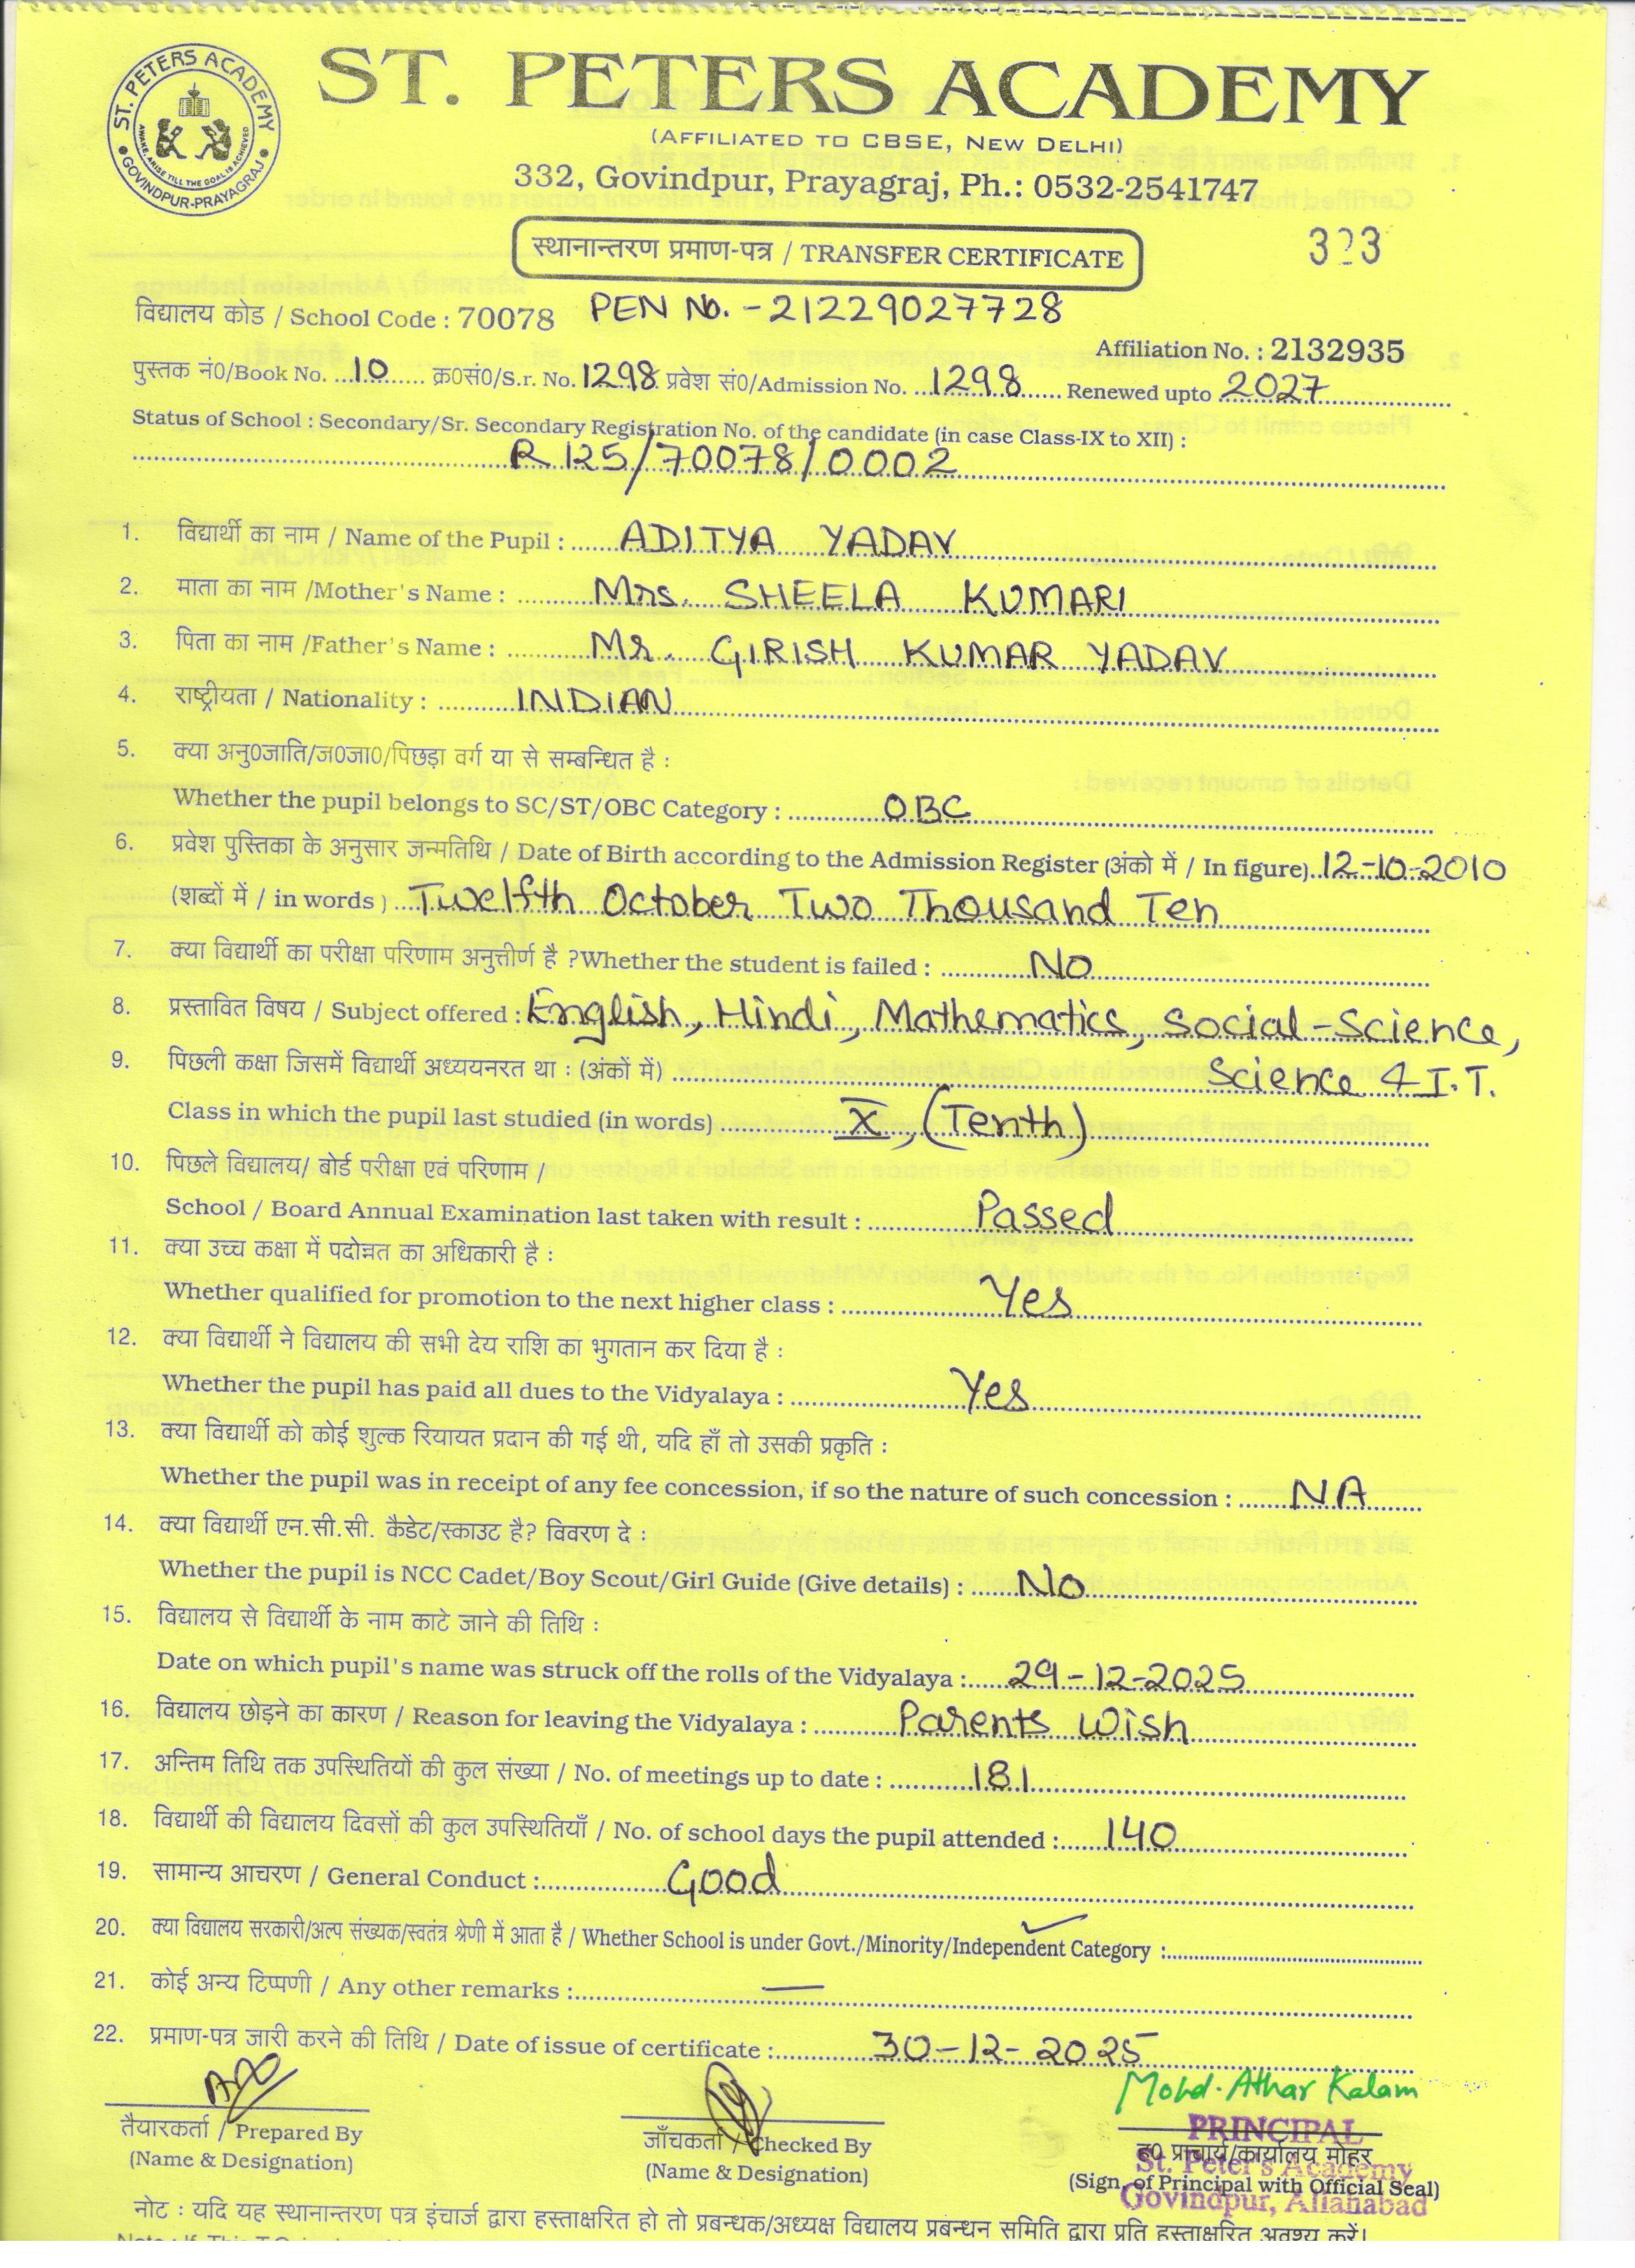 ST. PETERS ACADEMY
GOVINDPUR-PRAYAGRAJ
AWAKE, ARISE TILL THE GOAL IS ACHIEVED
ST. PETERS ACADEMY
(AFFILIATED TO CBSE, NEW DELHI)
332, Govindpur, Prayagraj, Ph.: 0532-2541747
स्थानान्तरण प्रमाण-पत्र / TRANSFER CERTIFICATE
323
विद्यालय कोड / School Code : 70078 PEN No. - 21229027728
Affiliation No. : 2132935
पुस्तक नं0/Book No. 10 क्र0सं0/S.r. No. 1298 प्रवेश सं0/Admission No. 1298 Renewed upto 2027
Status of School : Secondary/Sr. Secondary Registration No. of the candidate (in case Class-IX to XII) :
R125/70078/0002
1. विद्यार्थी का नाम / Name of the Pupil : ADITYA YADAV
2. माता का नाम /Mother's Name : Mrs. SHEELA KUMARI
3. पिता का नाम /Father's Name : Mr. GIRISH KUMAR YADAV
4. राष्ट्रीयता / Nationality : INDIAN
5. क्या अनु0जाति/ज0जा0/पिछड़ा वर्ग या से सम्बन्धित है :
Whether the pupil belongs to SC/ST/OBC Category : OBC
6. प्रवेश पुस्तिका के अनुसार जन्मतिथि / Date of Birth according to the Admission Register (अंको में / In figure) 12-10-2010
(शब्दों में / in words ) Twelfth October Two Thousand Ten
7. क्या विद्यार्थी का परीक्षा परिणाम अनुत्तीर्ण है ?Whether the student is failed : NO
8. प्रस्तावित विषय / Subject offered : English, Hindi, Mathematics, Social-Science,
9. पिछली कक्षा जिसमें विद्यार्थी अध्ययनरत था : (अंकों में) Science & I.T.
Class in which the pupil last studied (in words) X, (Tenth)
10. पिछले विद्यालय/ बोर्ड परीक्षा एवं परिणाम /
School / Board Annual Examination last taken with result : Passed
11. क्या उच्च कक्षा में पदोन्नत का अधिकारी है :
Whether qualified for promotion to the next higher class : Yes
12. क्या विद्यार्थी ने विद्यालय की सभी देय राशि का भुगतान कर दिया है :
Whether the pupil has paid all dues to the Vidyalaya : Yes
13. क्या विद्यार्थी को कोई शुल्क रियायत प्रदान की गई थी, यदि हाँ तो उसकी प्रकृति :
Whether the pupil was in receipt of any fee concession, if so the nature of such concession : NA
14. क्या विद्यार्थी एन.सी.सी. कैडेट/स्काउट है? विवरण दे :
Whether the pupil is NCC Cadet/Boy Scout/Girl Guide (Give details) : No
15. विद्यालय से विद्यार्थी के नाम काटे जाने की तिथि :
Date on which pupil's name was struck off the rolls of the Vidyalaya : 29-12-2025
16. विद्यालय छोड़ने का कारण / Reason for leaving the Vidyalaya : Parents Wish
17. अन्तिम तिथि तक उपस्थितियों की कुल संख्या / No. of meetings up to date : 181
18. विद्यार्थी की विद्यालय दिवसों की कुल उपस्थितियाँ / No. of school days the pupil attended : 140
19. सामान्य आचरण / General Conduct : Good
20. क्या विद्यालय सरकारी/अल्प संख्यक/स्वतंत्र श्रेणी में आता है / Whether School is under Govt./Minority/Independent Category :
21. कोई अन्य टिप्पणी / Any other remarks : —
22. प्रमाण-पत्र जारी करने की तिथि / Date of issue of certificate : 30-12-2025
Mohd. Athar Kalam
PRINCIPAL
St. Peter's Academy
Govindpur, Allahabad
तैयारकर्ता / Prepared By
(Name & Designation)
जाँचकर्ता / Checked By
(Name & Designation)
ह0 प्राचार्य/कार्यालय मोहर
(Sign. of Principal with Official Seal)
नोट : यदि यह स्थानान्तरण पत्र इंचार्ज द्वारा हस्ताक्षरित हो तो प्रबन्धक/अध्यक्ष विद्यालय प्रबन्धन समिति द्वारा प्रति हस्ताक्षरित अवश्य करें।